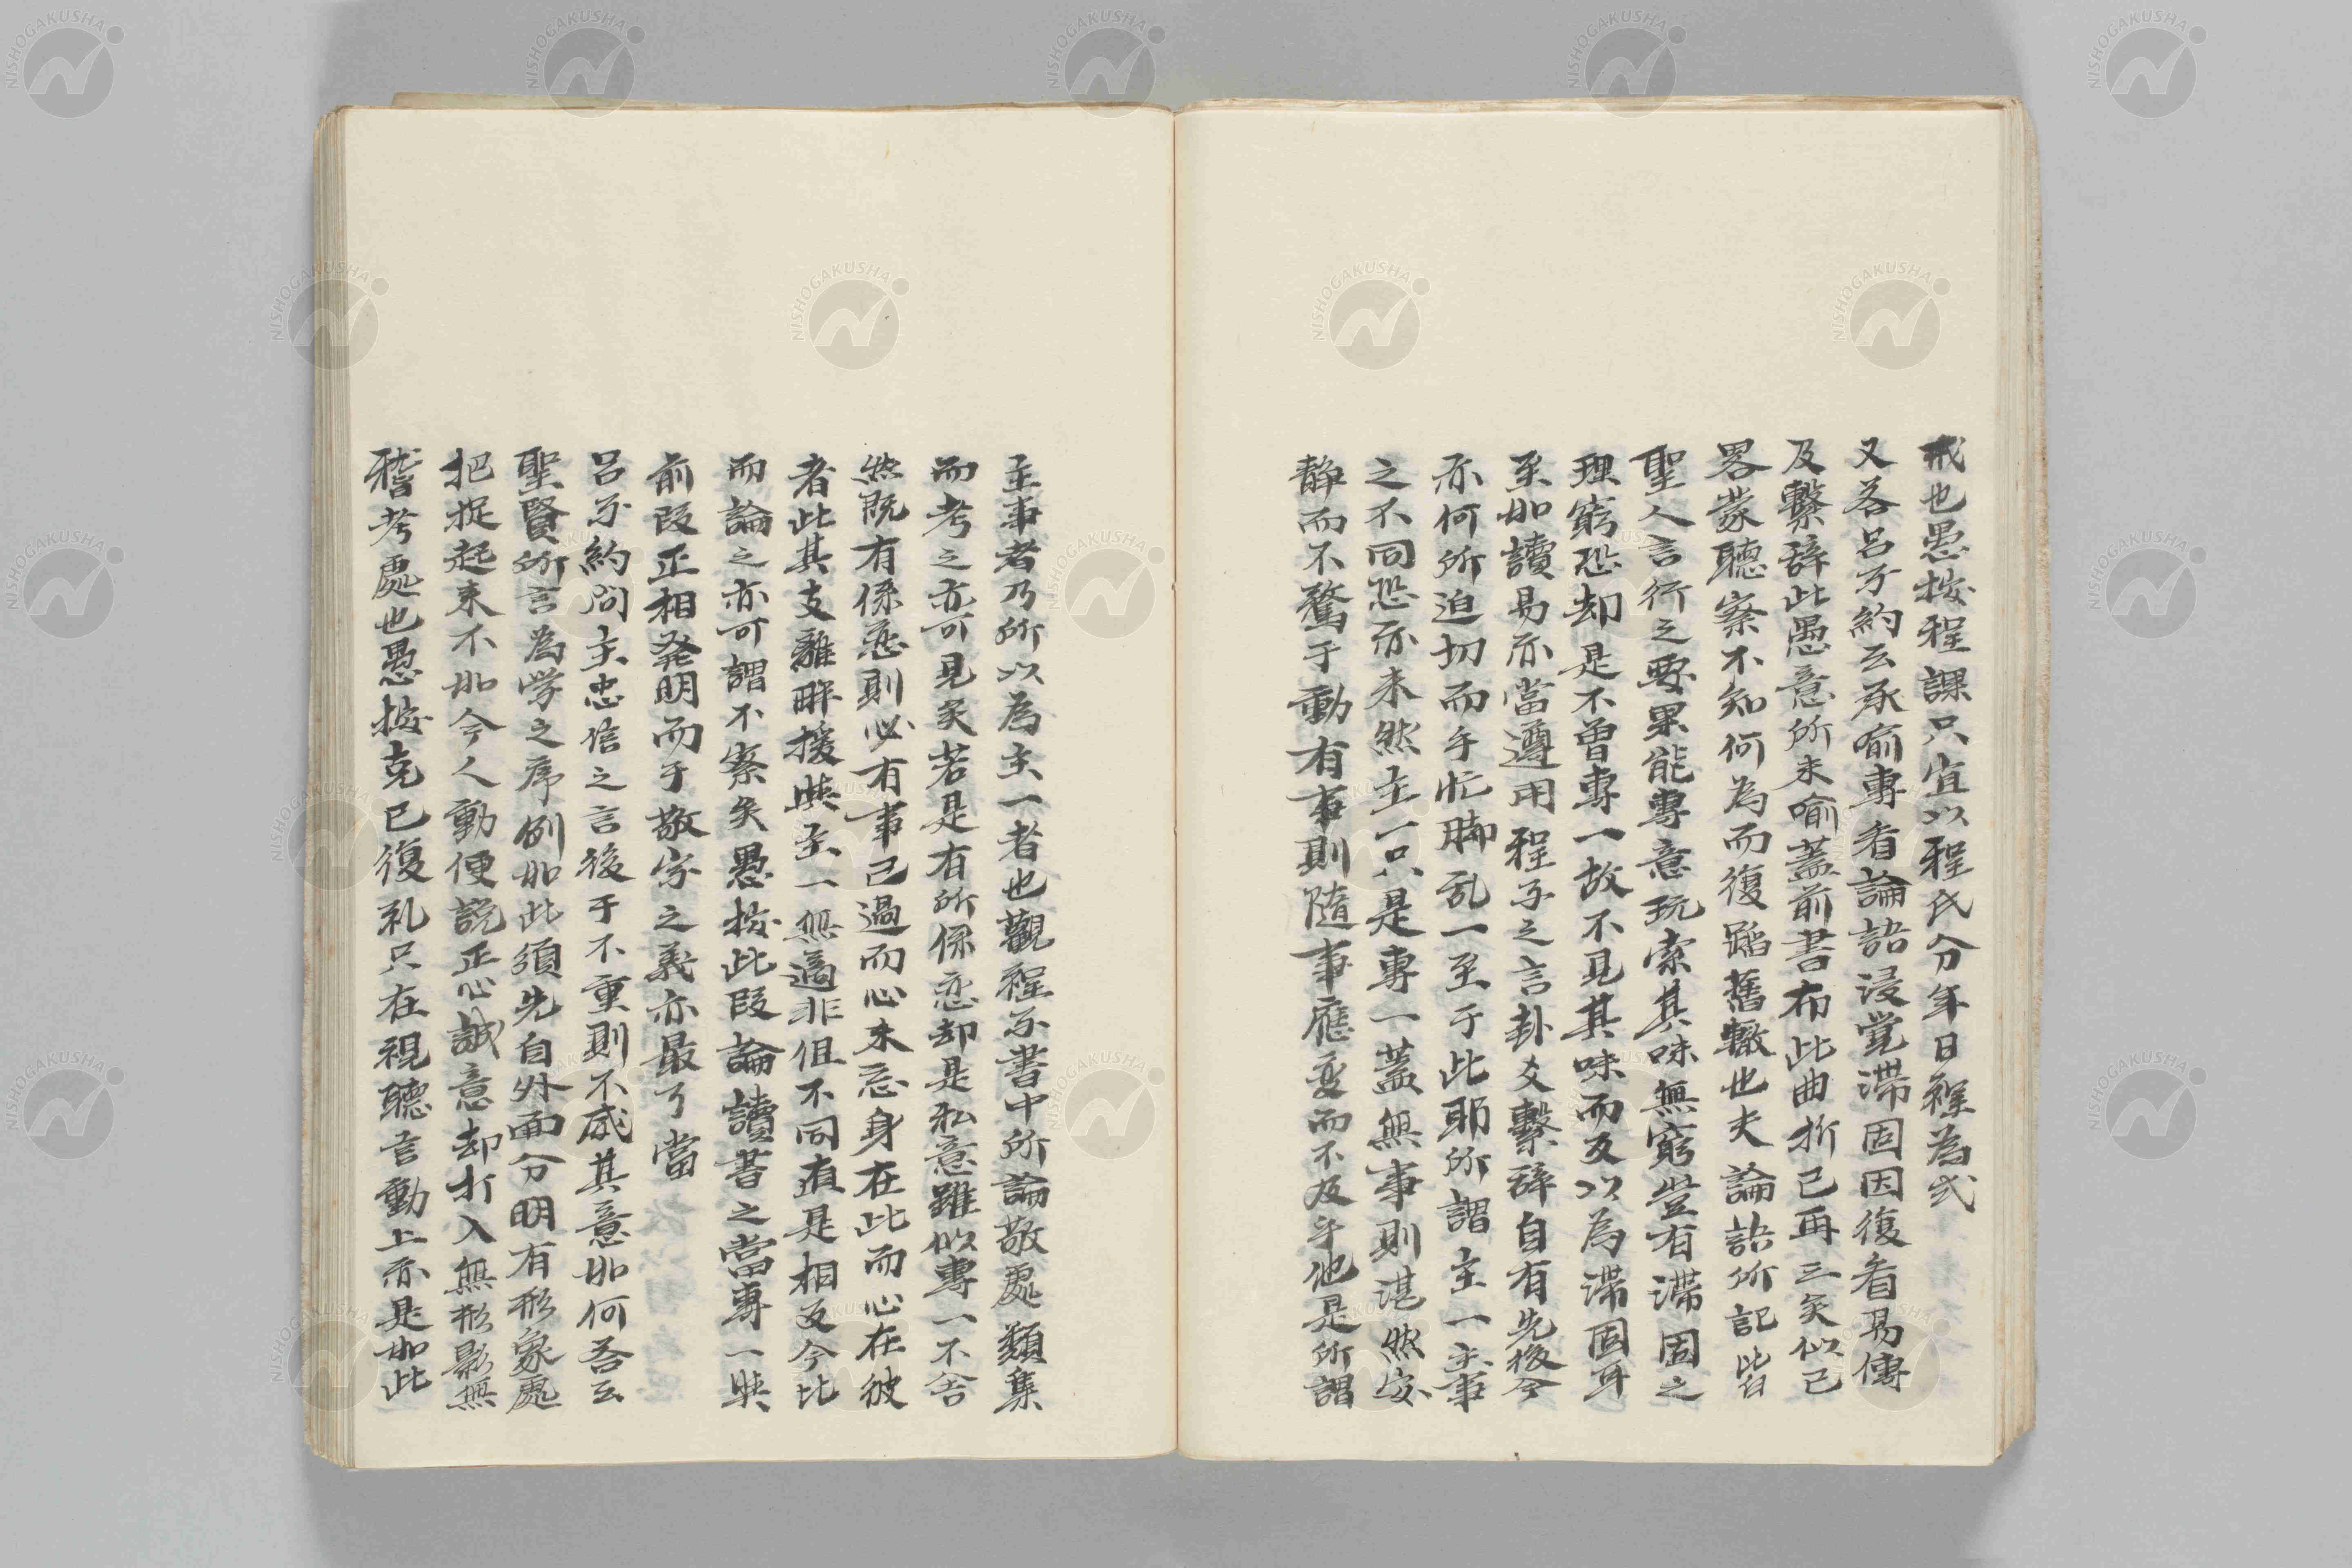 戒也愚按程課只宜以程氏分年日程為式
又答呂子約云承喻專看論語浸覚滞固因復看易傳
及繫辞此愚意所未喻蓋前書布此曲折已再三矣似已
畧蒙聴察不知何為而復蹈舊轍也夫論語所記皆
聖人言行之要果能專意玩索其味無窮豈有滞固之
理窮恐却是不曽專一故不見其味而反以為滞固耳
至如讀易亦當遵用程子之言卦爻繫辞自有先後今
亦何所迫切而手忙脚乱一至于此耶所謂主一主事
之不同恐亦未然主一只是專一蓋無事則湛然安
静而不騖于動有事則隨事應変而不及乎他是所謂
主事者乃所以為主一者也觀程子書中所論敬處類集
而考之亦可見矣若是有所係恋却是私意雖似專一不舍
然既有係恋則必有事已過而心未忘身在此而心在彼
者此其支離畔援與主一無適非但不同直是相反今比
而論之亦可謂不察矣愚按此段論讀書之當專一與
前段正相発明而于敬字之義亦最了當
呂子約問主忠信之言後于不重則不威其意如何答云
聖賢所言為学之序例如此須先自外面分明有形象處
把捉起来不如今人動便説正心誠意却打入無形影無
稽考處也愚按克己復礼只在視聴言動上亦是如此
NISHOGAKUSHA